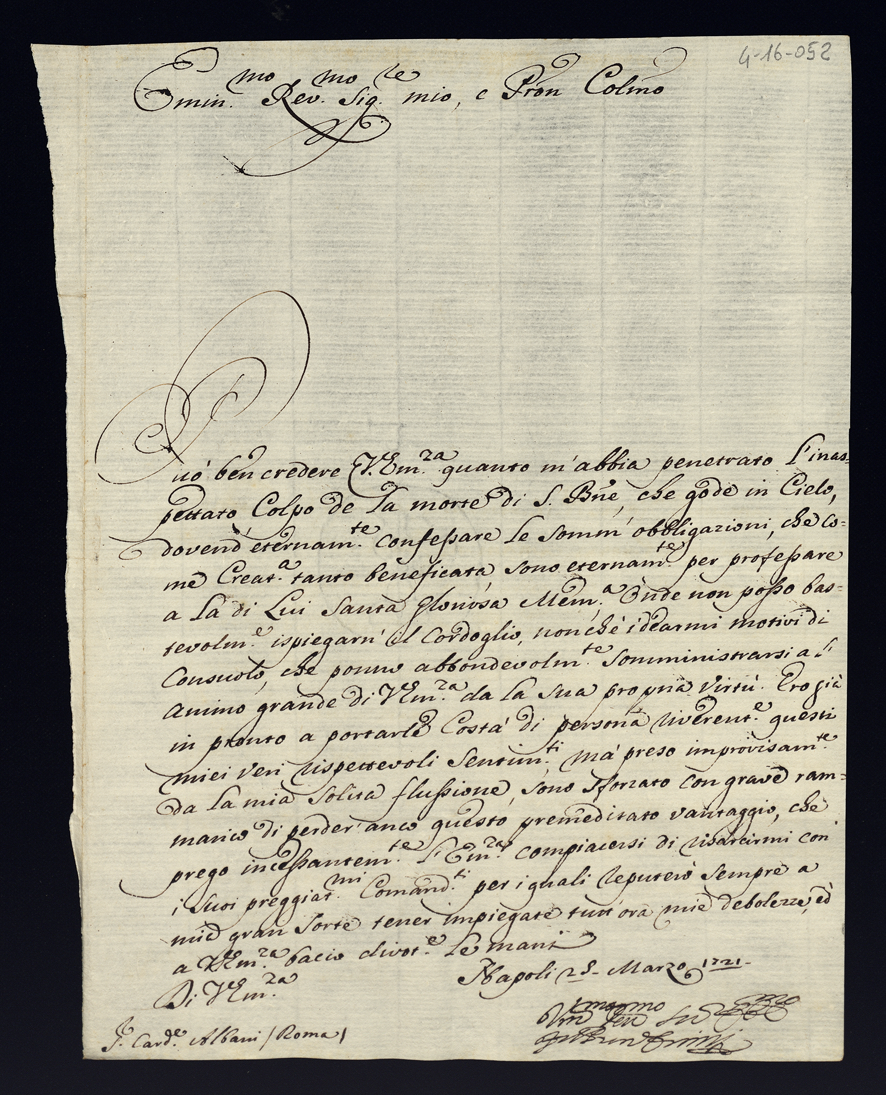 4-16-052
Emin.mo Rev.mo Sig.re mio, e Pron Colmo
Può ben credere V.Em.za quanto m'abbia penetrato l'inas=
pettato Colpo de la morte di S. Bne, che gode in Cielo,
dovend' eternam.te confessare le somm' obbligazioni, che co=
me Creat.a tanto beneficata, sono eternam.te per professare
a la di Lui Santa Gloriosa Mem.a Onde non posso bas=
tevolm.e ispiegarn' il Cordoglio, non chè idearmi motivi di
Consuolo, che ponno abbondevolm.te somministrarsi a l'
animo grande di V.Em.za da la sua propria Virtù. Ero già
in pronto a portarle Costà di persona riverent.e questi
miei veri rispettevoli Sentim.ti, mà preso improvisam.te
da la mia solita flussione, sono sforzato con grave ram=
marico di perder' anco questo premeditato vantaggio, che
prego incessantem.te l'Em.za compiacersi di risarcirmi con
i suoi preggiat.mi Comand.ti per i quali reputerò sempre a
mie gran sorte tener impiegate tutt'ora mie debolezze, ed
a V.Em.za bacio divot.e le mani
Napoli 25 Marzo 1721.
Di V.Em.za
S. Card.e Albani / Roma /